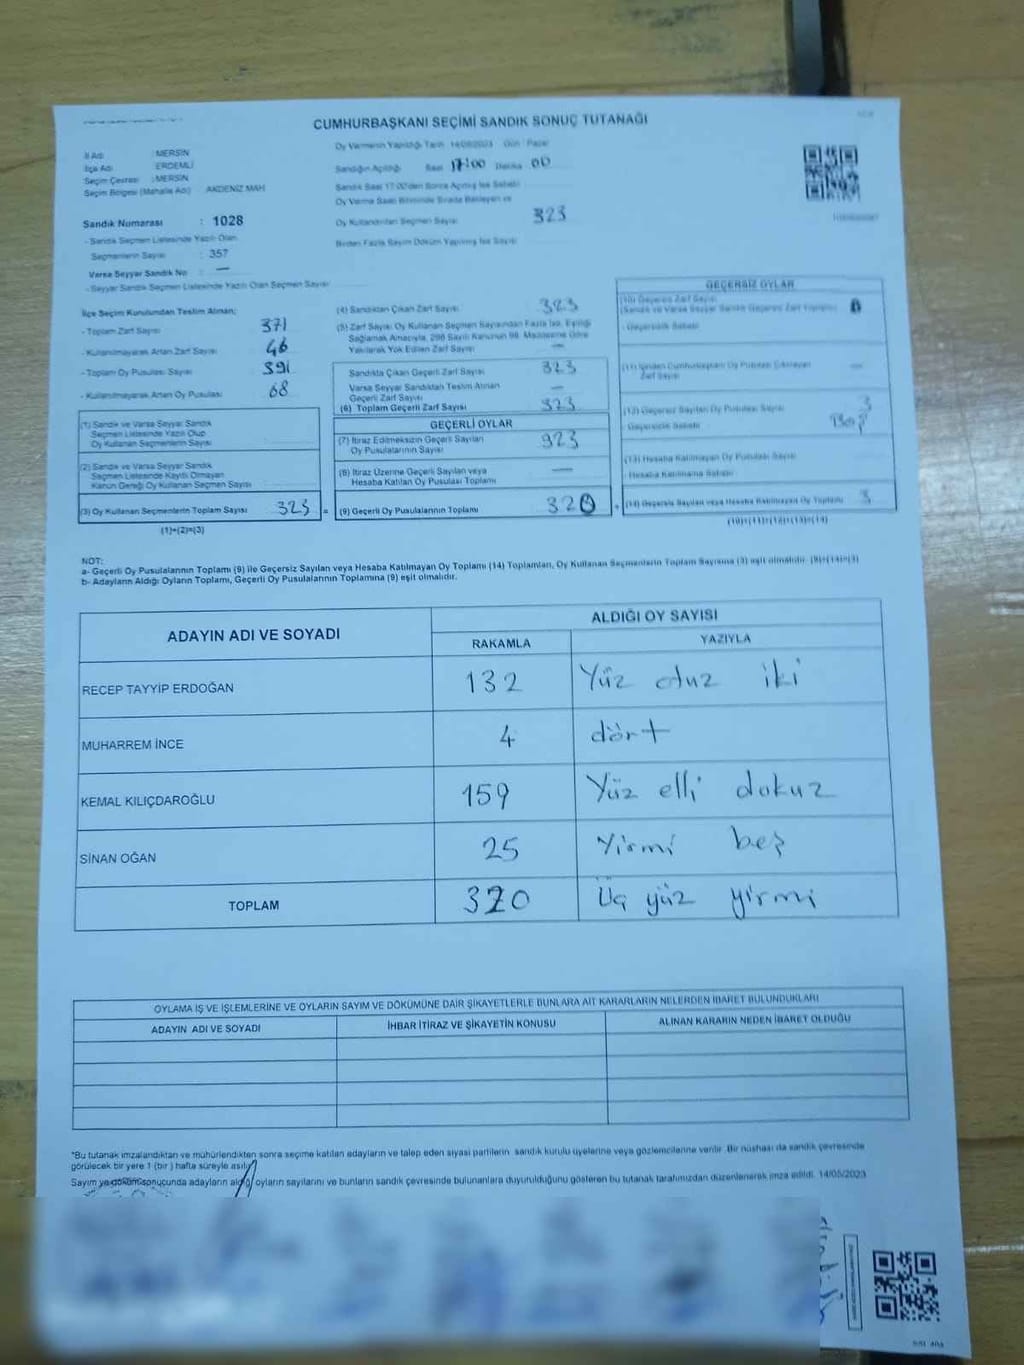 CUMHURBAŞKANI SEÇİMİ SANDIK SONUÇ TUTANAĞI
İl Adı : MERSİN
İlçe Adı : ERDEMLİ
Seçim Çevresi : MERSİN
Seçim Bölgesi (Mahalle Adı) AKDENİZ MAH
Sandık Numarası : 1028
- Sandık Seçmen Listesinde Yazılı Olan
Seçmenlerin Sayısı : 357
Varsa Seyyar Sandık No : —
- Seyyar Sandık Seçmen Listesinde Yazılı Olan Seçmen Sayısı
Oy Vermenin Yapıldığı Tarih 14/05/2023 Gün : Pazar
Sandığın Açıldığı Saat 17:00 Dakika 00
Sandık Saat 17.00'den Sonra Açılmış İse Sebebi
Oy Verme Saati Bitiminde Sırada Bekleyen ve
Oy Kullandırılan Seçmen Sayısı 323
Birden Fazla Sayım Döküm Yapılmış İse Sayısı
İlçe Seçim Kurulundan Teslim Alınan;
- Toplam Zarf Sayısı 371
- Kullanılmayarak Artan Zarf Sayısı 46
- Toplam Oy Pusulası Sayısı 391
- Kullanılmayarak Artan Oy Pusulası 68
(1) Sandık ve Varsa Seyyar Sandık
Seçmen Listesinde Yazılı Olup
Oy Kullanan Seçmenlerin Sayısı
(2) Sandık ve Varsa Seyyar Sandık
Seçmen Listesinde Kayıtlı Olmayan
Kanun Gereği Oy Kullanan Seçmen Sayısı
(3) Oy Kullanan Seçmenlerin Toplam Sayısı 323 =
(1)+(2)=(3)
(4) Sandıktan Çıkan Zarf Sayısı 323
(5) Zarf Sayısı Oy Kullanan Seçmen Sayısından Fazla İse, Eşitliği
Sağlamak Amacıyla, 298 Sayılı Kanunun 98. Maddesine Göre
Yakılarak Yok Edilen Zarf Sayısı —
Sandıkta Çıkan Geçerli Zarf Sayısı 323
Varsa Seyyar Sandıktan Teslim Alınan
Geçerli Zarf Sayısı —
(6) Toplam Geçerli Zarf Sayısı 323
GEÇERLİ OYLAR
(7) İtiraz Edilmeksizin Geçerli Sayılan
Oy Pusulalarının Sayısı 323
(8) İtiraz Üzerine Geçerli Sayılan veya
Hesaba Katılan Oy Pusulası Toplamı —
(9) Geçerli Oy Pusulalarının Toplamı 320 +
GEÇERSİZ OYLAR
(10) Geçersiz Zarf Sayısı
(Sandık ve Varsa Seyyar Sandık Geçersiz Zarf Toplamı) 0
- Geçersizlik Sebebi
(11) İçinden Cumhurbaşkanı Oy Pusulası Çıkmayan
Zarf Sayısı —
(12) Geçersiz Sayılan Oy Pusulası Sayısı 3
Geçersizlik Sebebi Boş
(13) Hesaba Katılmayan Oy Pusulası Sayısı
Hesaba Katılmama Sebebi
(14) Geçersiz Sayılan veya Hesaba Katılmayan Oy Toplamı 3
(10)+(11)+(12)+(13)=(14)
NOT:
a- Geçerli Oy Pusulalarının Toplamı (9) ile Geçersiz Sayılan veya Hesaba Katılmayan Oy Toplamı (14) Toplamları, Oy Kullanan Seçmenlerin Toplam Sayısına (3) eşit olmalıdır. (9)+(14)=(3)
b- Adayların Aldığı Oyların Toplamı, Geçerli Oy Pusulalarının Toplamına (9) eşit olmalıdır.
ADAYIN ADI VE SOYADI
ALDIĞI OY SAYISI
RAKAMLA YAZIYLA
RECEP TAYYİP ERDOĞAN 132 Yüz otuz iki
MUHARREM İNCE 4 dört
KEMAL KILIÇDAROĞLU 159 Yüz elli dokuz
SİNAN OĞAN 25 Yirmi beş
TOPLAM 320 Üç yüz yirmi
OYLAMA İŞ VE İŞLEMLERİNE VE OYLARIN SAYIM VE DÖKÜMÜNE DAİR ŞİKAYETLERLE BUNLARA AİT KARARLARIN NELERDEN İBARET BULUNDUKLARI
ADAYIN ADI VE SOYADI İHBAR İTİRAZ VE ŞİKAYETİN KONUSU ALINAN KARARIN NEDEN İBARET OLDUĞU
*Bu tutanak imzalandıktan ve mühürlendikten sonra seçime katılan adayların ve talep eden siyasi partilerin sandık kurulu üyelerine veya gözlemcilerine verilir. Bir nüshası da sandık çevresinde
görülecek bir yere 1 (bir ) hafta süreyle asılır.
Sayım ve döküm sonucunda adayların aldığı oyların sayılarını ve bunların sandık çevresinde bulunanlara duyurulduğunu gösteren bu tutanak tarafımızdan düzenlenerek imza edildi. 14/05/2023